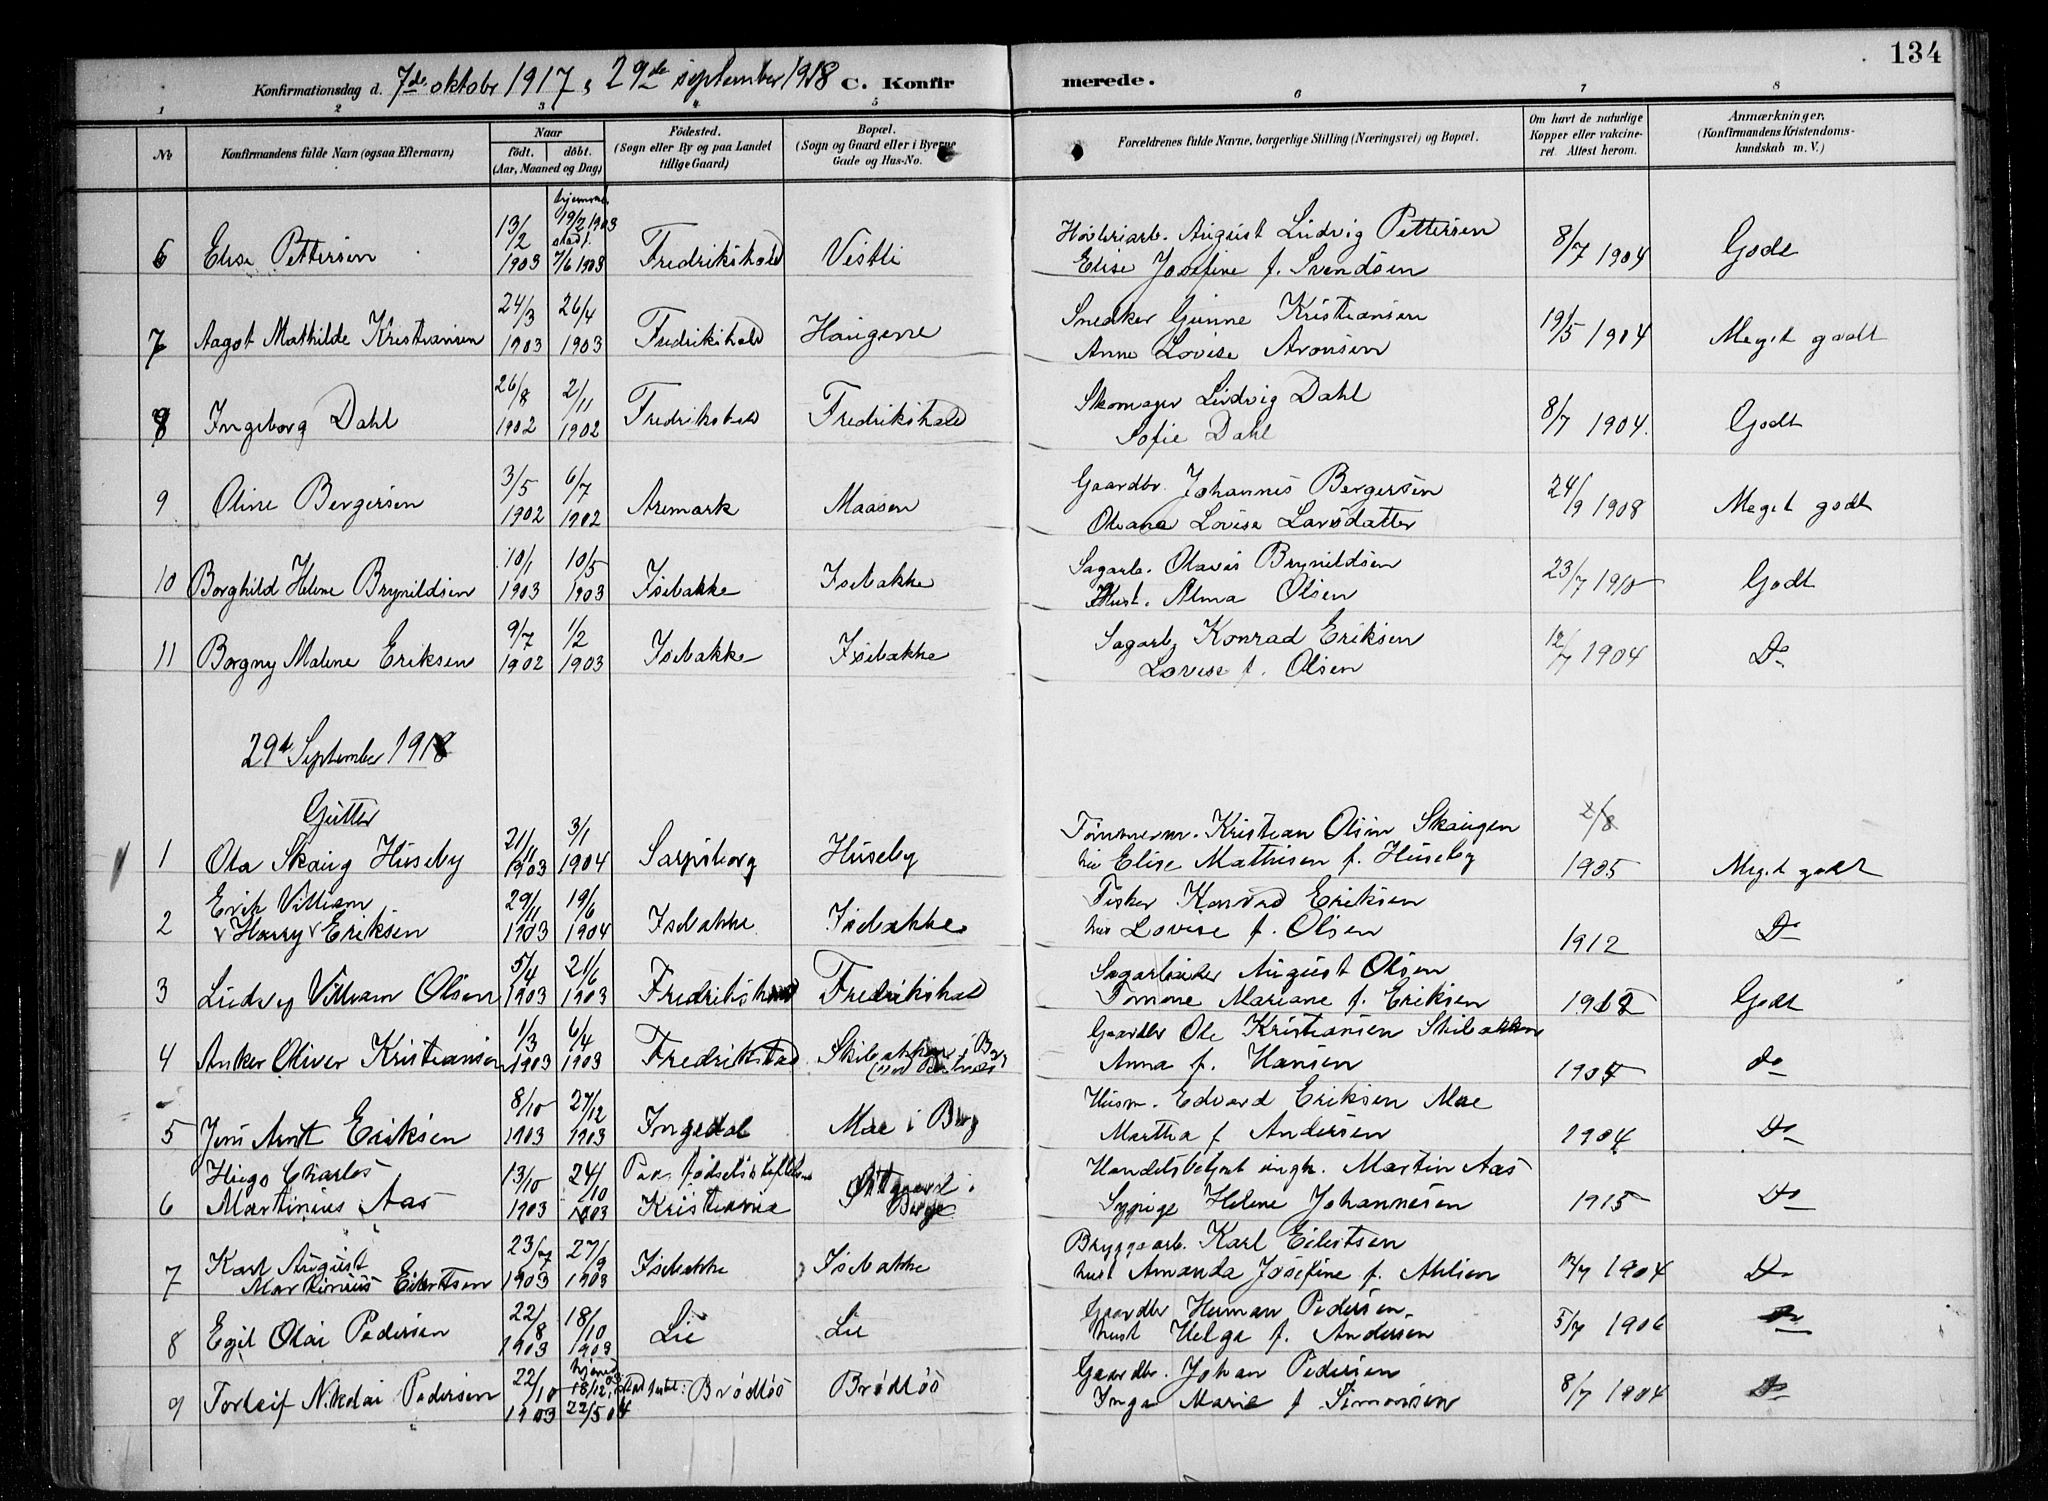 134
Konfirmationsdag d. 7de oktobr 1917, 29de september 1918 C. Konfirmerede.
1 2 3 4 5 6 7 8
No
Konfirmandens fulde Navn (ogsaa Efternavn)
Naar
født. døbt.
(Aar, Maaned og Dag)
Fødested.
(Sogn eller By og paa Landet
tillige Gaard)
Bopæl.
(Sogn og Gaard eller i Byerne
Gade og Hus-No.
Forældrenes fulde Navne, borgerlige Stilling (Næringsvei) og Bopæl.
Om havt de naturlige
Kopper eller vakcine-
ret. Attest herom.
Anmærkninger.
(Konfirmandens Kristendoms-
kundskab m. V.)
6 Elise Pettersen 13/2 1903 hjemme 19/2 1903 stadf. 7/6 1903 Fredrikshald Vistli
Høvleriarb. August Ludvig Pettersen
Elise Josefine f. Svendsen 8/7 1904 Godt
7 Aagot Mathilde Kristiansen 24/3 1903 26/4 1903 Fredrikshald Haugene
Snedker Gunne Kristiansen
Anne Lovise Aronsen 19/5 1904 Meget godt
8 Ingeborg Dahl 26/8 1902 2/11 1902 Fredrikshald Fredrikshald
Skomager Ludvig Dahl
Sofie Dahl 8/7 1904. Godt
9 Oline Bergersen 3/5 1902 6/7 1902 Aremark Maasen
Gaardbr. Johannes Bergersen
Olsana Lovise Larsdatter 24/9 1908 Meget godt
10 Borghild Helene Brynildsen 10/1 1903 10/5 1903 Isebakke Isebakke
Sagarb. Olavis Brynildsen
Hust. Alma Olsen 23/7 1910 Godt
11 Borgny Malene Eriksen 9/7 1902 1/2 1903 Isebakke Isebakke
Sagarb Konrad Eriksen
Lovise f. Olsen 12/7 1904 Do
29de September 1918
Gutter
1 Ola Skaug Huseby 21/11 1903 3/1 1904 Sarpsborg Huseby
Tømmerm. Kristian Olsen Skaugen
Elise Mathisen f. Huseby 2/8 1905 Meget godt
2 Erik Villiam
Harry Eriksen 29/11 1903 19/6 1904 Isebakke Isebakke
Fisker Konrad Eriksen
Lovise f. Olsen 1912 Do
3 Ludvig Villiam Olsen 5/4 1903 21/6 1903 Fredrikshald Fredrikshald
Sagarbeider August Olsen
Tomine Mariane f. Eriksen 1912 Godt
4 Anker Oliver Kristiansen 1/3 1903 6/4 1903 Fredrikstad Skibakken i Berg
Gaardbr Ole Kristiansen Skibakken
Anna f. Hansen 1904 do
5 Jens Arnt Eriksen 8/10 1903 27/12 1903 Ingedal Mae i Berg
Husm. Edvard Eriksen Mae
Martha f Andersen 1904 Do
6 Hugo Charles
Martinius Aas 13/10 1903 24/10 1903 Kristiania Østgaard i Berg
Handelsbetjent ungk. Martin Aas
Sypige Helene Johannesen 1915 Do
7 Karl August
Martinius Eilertsen 23/7 1903 27/9 1903 Isebakke Isebakke
Bryggearb. Karl Eilertsen
hust Amanda Josefine f. Ahlsen 12/7 1904 Do
8 Egil Olai Pedersen 22/8 1903 18/10 1903 Lie Lie
Gaardbr Herman Pedersen
hust Helga f. Andersen 5/7 1906 Do
9 Torleif Nikolai Pedersen 22/10 1903 hjemmed. 18/12 03 22/5 04 Brødløs Brødløs
Gaardbr. Johan Pedersen
Inga Marie f Simonsen 8/7 1904 Do